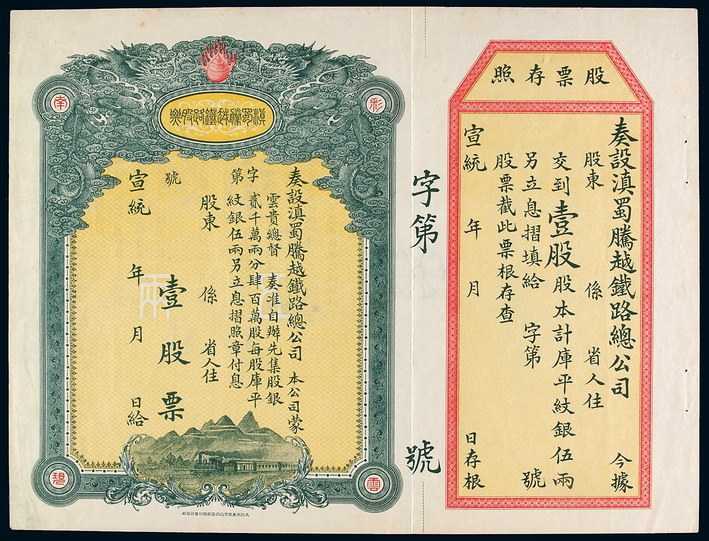 股票存照
奏設滇蜀騰越鐵路總公司 今據
股東 係 省人住
交到壹股股本計庫平紋銀伍兩
另立息摺填給 字第 號
股票截此票根存查
宣統 年 月 日存根
字第 號
滇蜀騰越鐵路股票
彩
南
雲
碧
奏設滇蜀騰越鐵路總公司 本公司蒙
雲貴總督 奏准自辦先集股銀
貳千萬兩分肆百萬股每股庫平
紋銀伍兩另立息摺照章付息
字第 號
股東 係 省人住
壹股票
宣統 年 月 日給
伍兩